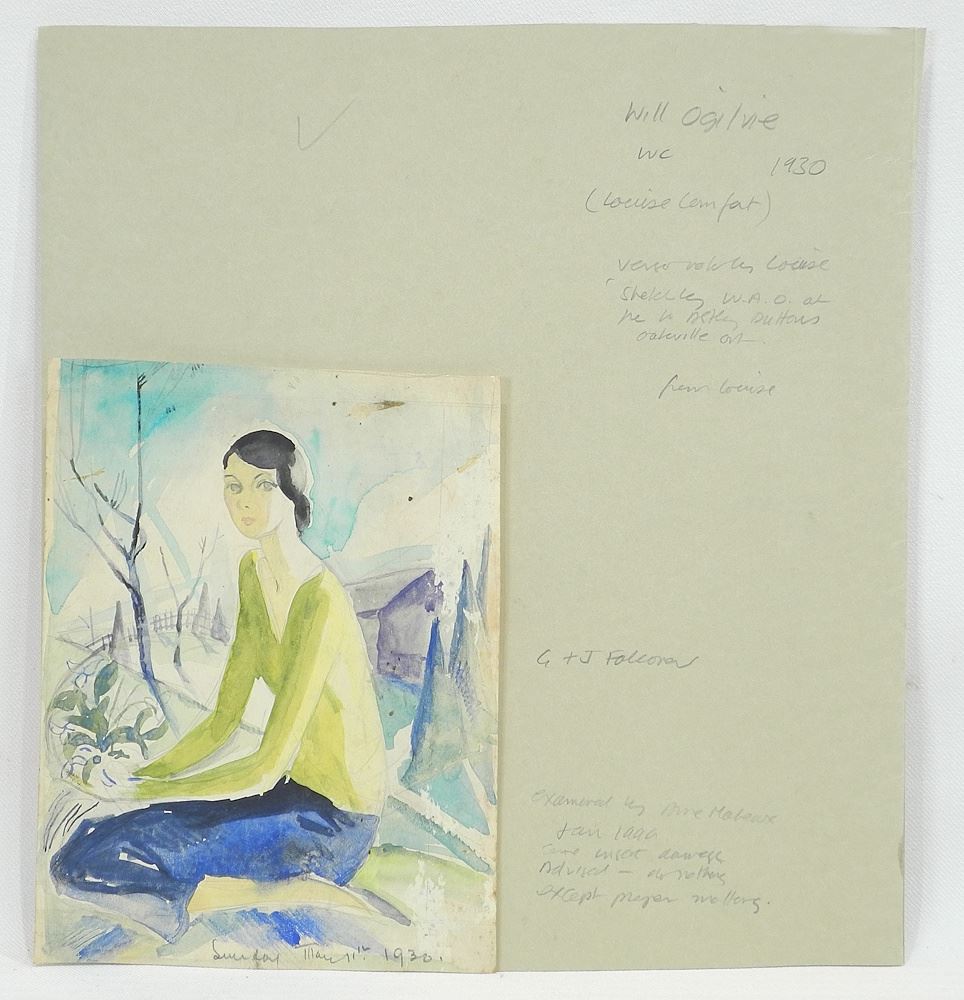 Will Ogilvie
WC 1930
(Louise Comfort)
verso note by Louise
Sketch by W.A.O. at
Suttons
Oakville Ont.
from Louise
G + J
examined by
Jan
Some insect damage
Advised — do nothing
except proper matting.
Sunday May 11th 1930.